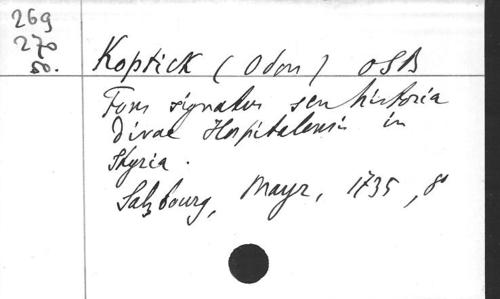 269
270
50.
Koptick (Odon) OSB
Fons signatus seu historia
Divae Hospitalensis in
Styria.
Salzbourg, Mayr, 1735, 8°